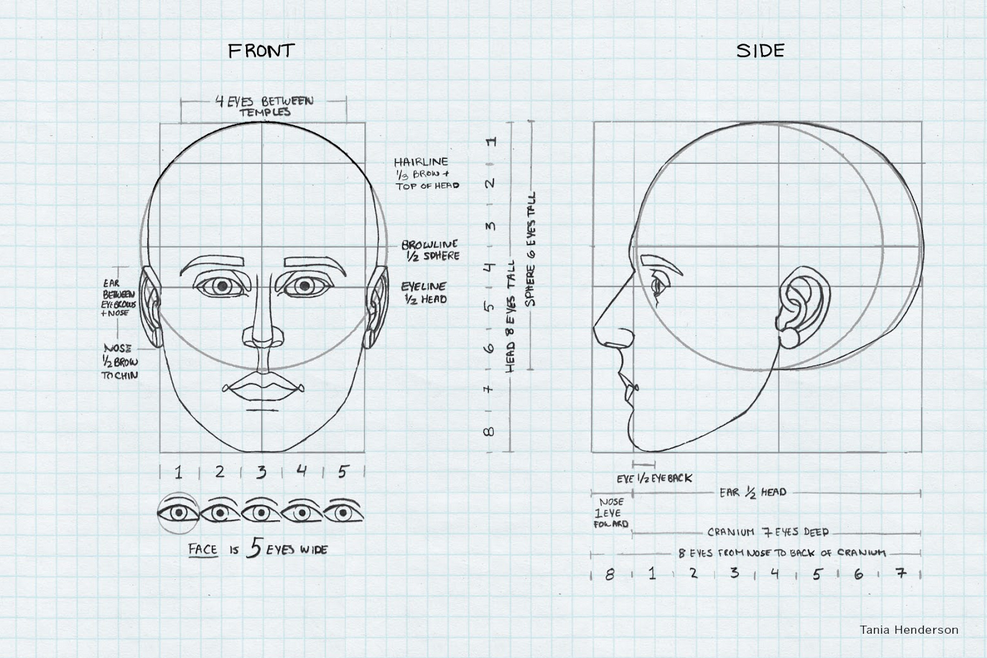 FRONT
SIDE
4 EYES BETWEEN
TEMPLES
HAIRLINE
1/3 BROW +
TOP OF HEAD
BROWLINE
1/2 SPHERE
EYELINE
1/2 HEAD
EAR
BETWEEN
EYEBROWS
+ NOSE
NOSE
1/2 BROW
TO CHIN
1
2
3
4
5
6
7
8
HEAD 8 EYES TALL
SPHERE 6 EYES TALL
1 2 3 4 5
FACE IS 5 EYES WIDE
EYE 1/2 EYE BACK
EAR 1/2 HEAD
NOSE
1 EYE
FOWARD
CRANIUM 7 EYES DEEP
8 EYES FROM NOSE TO BACK OF CRANIUM
8 1 2 3 4 5 6 7
Tania Henderson